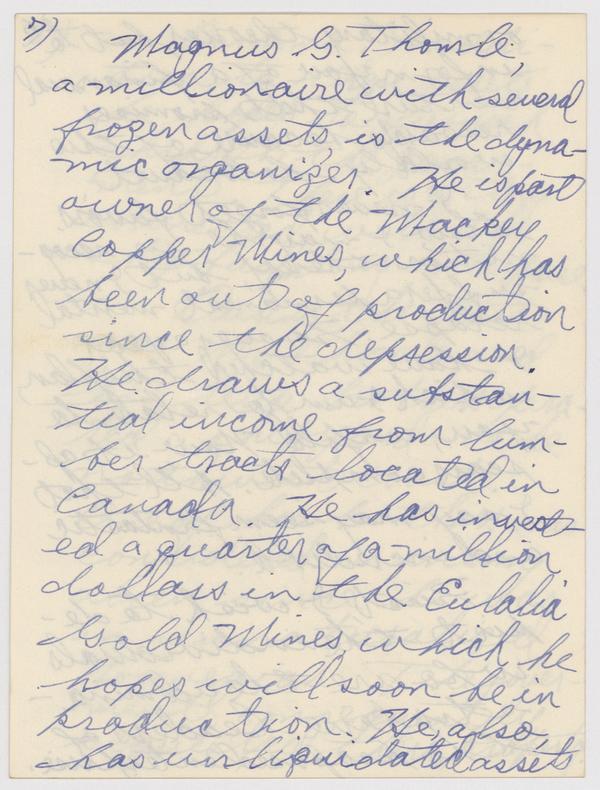 7)
Magnus G. Thomle,
a millionaire with several
frozen assets, is the dyna-
mic organizer. He is part
owner of the Mackey
Copper Mines, which has
been out of production
since the depression.
He draws a substan-
tial income from lum-
ber tracts located in
Canada. He has invest-
ed a quarter of a million
dollars in the Eulalia
Gold Mines, which he
hopes will soon be in
production. He, also,
has unliquidated assets